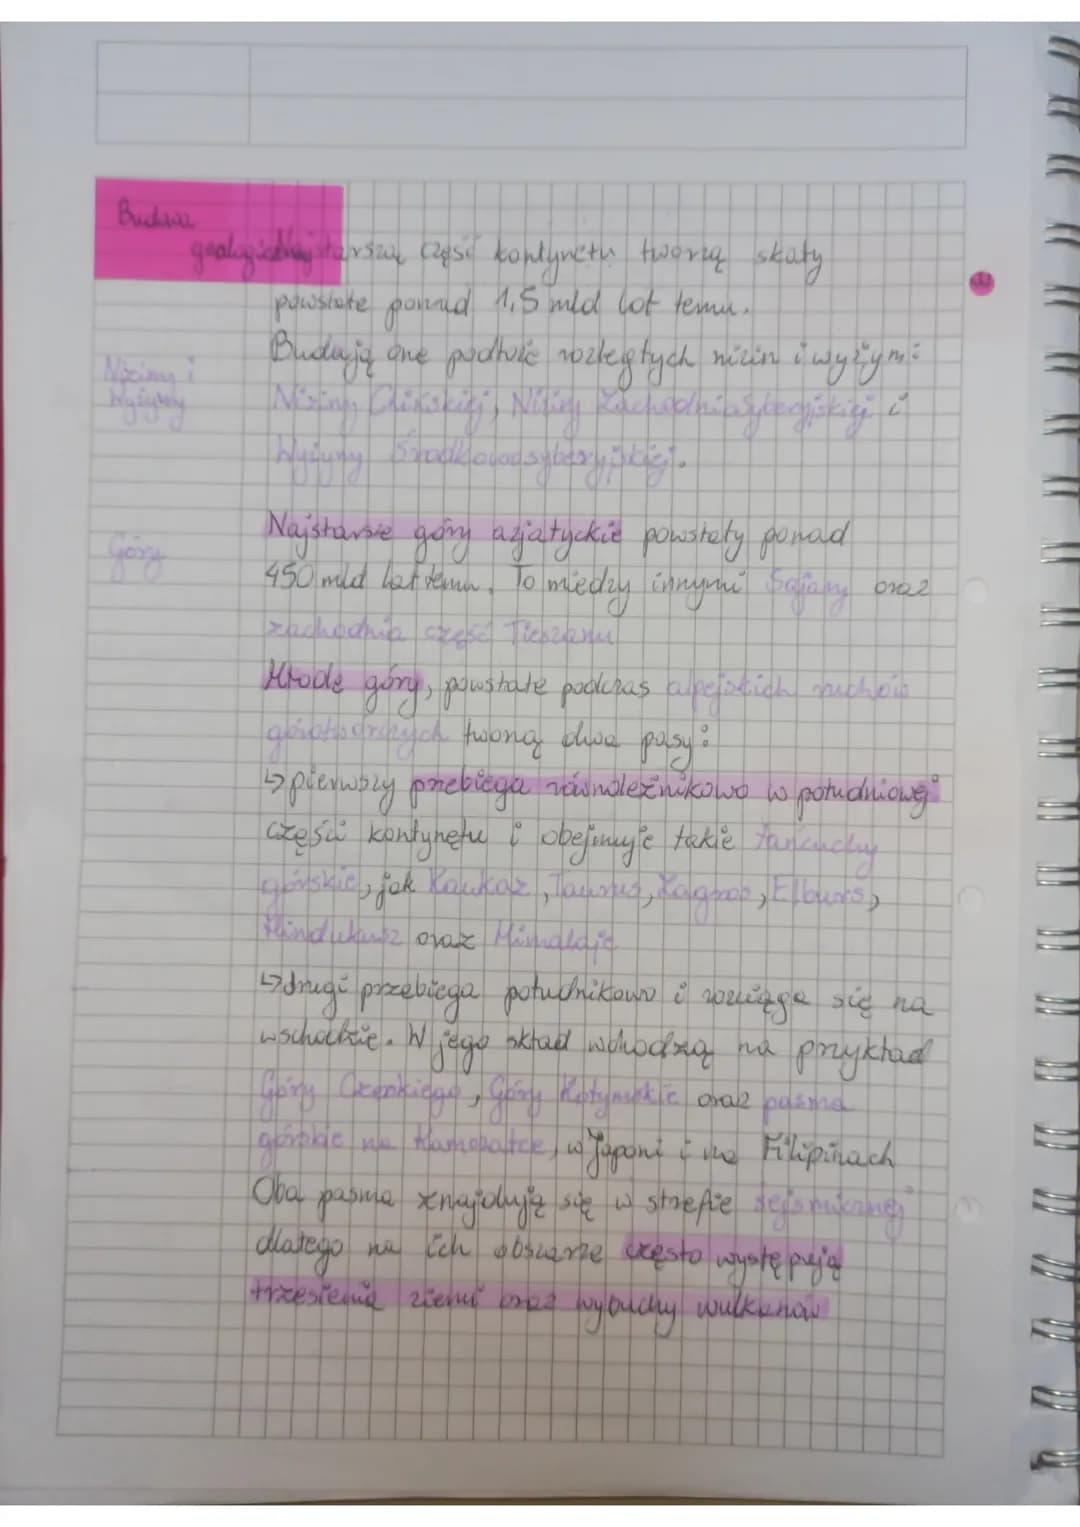 Budowa
geologiczna Najstarszą część kontynetu tworzą skały
powstałe ponad 1,5 mld lat temu.
Budają one podłoże rozległych nizin i wyżyn:
Niziny i
Wyżyny
Niziny Chińskiej, Niziny Zachodniosyberyjskiej i
Wyżyny Środkowosyberyjskiej.
Góry
Najstarsze góry azjatyckie powstały ponad
450 mld lat temu. To miedzy innymi Sajany oraz
zachodnia część Tienszanu
Młode góry, powstałe podczas alpejskich ruchów
górotwórczych tworzą dwa pasy:
↳ pierwszy przebiega równoleżnikowo w południowej
części kontynętu i obejmuje takie łańcuchy
górskie, jak Kaukaz, Taurus, Zagros, Elburs,
Hindukusz oraz Himalaje
↳ drugi przebiega południkowo i rozciąga się na
wschodzie. W jego skład wchodzą na przykład
Góry Czerskiego, Góry Kołymskie oraz pasma
górskie na Kamczatce, w Japoni i na Filipinach
Oba pasma znajdują się w strefie sejsmicznej
dlatego na ich obszarze często występują
trzęsienia ziemi oraz wybuchy wulkanów